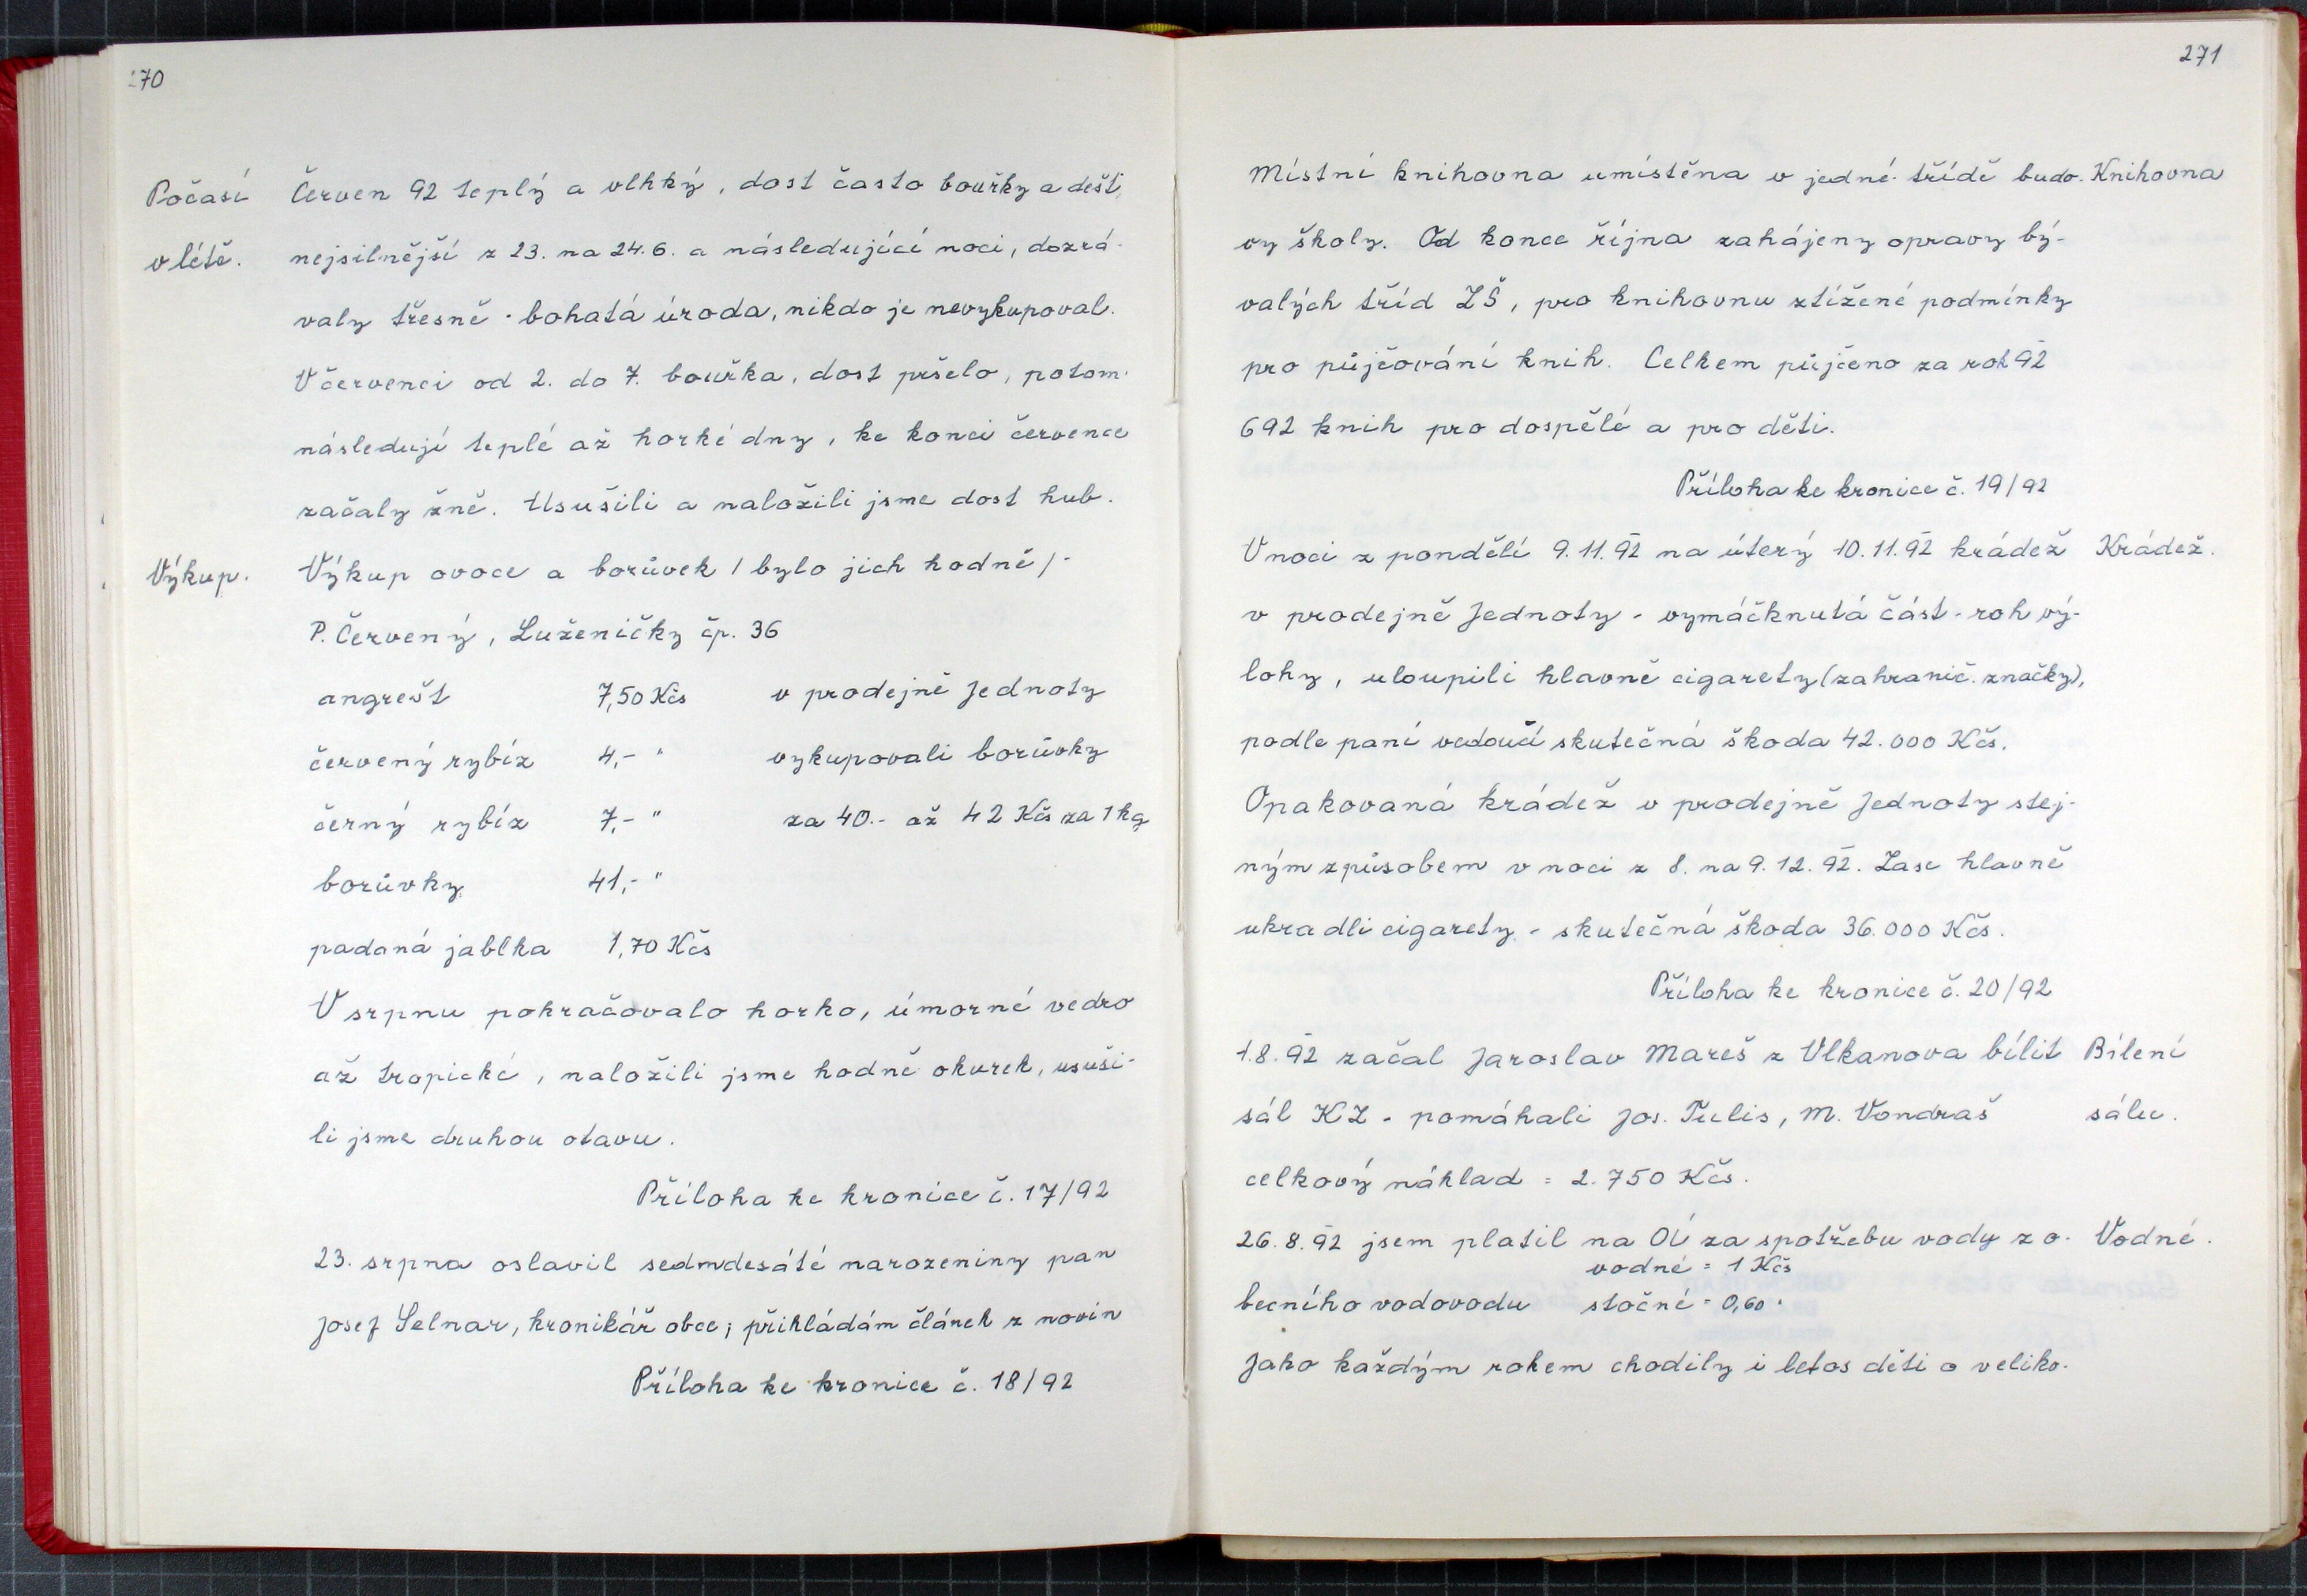 270
Počasí Červen 92 teplý a vlhký, dost často bouřky a dešť,
v létě. nejsilnější z 23. na 24.6. a následující noci, dozrá-
valy třešně - bohatá úroda, nikdo je nevykupoval.
V červenci od 2. do 7. bouřka, dost pršelo, potom
následují teplé až horké dny, ke konci července
začaly žně. Usušili a naložili jsme dost hub.
Výkup. Výkup ovoce a borůvek / bylo jich hodně / -
P. Červený, Luženičky čp. 36
angrešt 7,50 Kčs v prodejně Jednoty
červený rybíz 4,- " vykupovali borůvky
černý rybíz 7,- " za 40.- až 42 Kčs za 1 kg
borůvky 41,- "
padaná jablka 1,70 Kčs
V srpnu pokračovalo horko, úmorné vedro
až tropické, naložili jsme hodně okurek, usuši-
li jsme druhou otavu.
Příloha ke kronice č. 17/92
23. srpna oslavil sedmdesáté narozeniny pan
Josef Selnar, kronikář obce; přikládám článek z novin
Příloha ke kronice č. 18/92
271
Místní knihovna umístěna v jedné třídě budo- Knihovna
vy školy. Od konce října zahájeny opravy bý-
valých tříd ZŠ, pro knihovnu ztížené podmínky
pro půjčování knih. Celkem půjčeno za rok 92
692 knih pro dospělé a pro děti.
Příloha ke kronice č. 19/92
V noci z pondělí 9.11.92 na úterý 10.11.92 krádež Krádež.
v prodejně Jednoty - vymáčknutá část - roh vý-
lohy, uloupili hlavně cigarety (zahranič. značky),
podle paní vedoucí skutečná škoda 42.000 Kčs.
Opakovaná krádež v prodejně Jednoty stej-
ným způsobem v noci z 8. na 9.12.92. Zase hlavně
ukradli cigarety - skutečná škoda 36.000 Kčs.
Příloha ke kronice č. 20/92
1.8.92 začal Jaroslav Mareš z Vlkanova bílit Bílení
sál KZ - pomáhali Jos. Tulis, M. Vondraš sálu.
celkový náklad = 2.750 Kčs.
26.8.92 jsem platil na OÚ za spotřebu vody z o- Vodné.
vodné = 1 Kčs
becního vodovodu stočné = 0,60 "
Jako každým rokem chodily i letos děti o veliko-